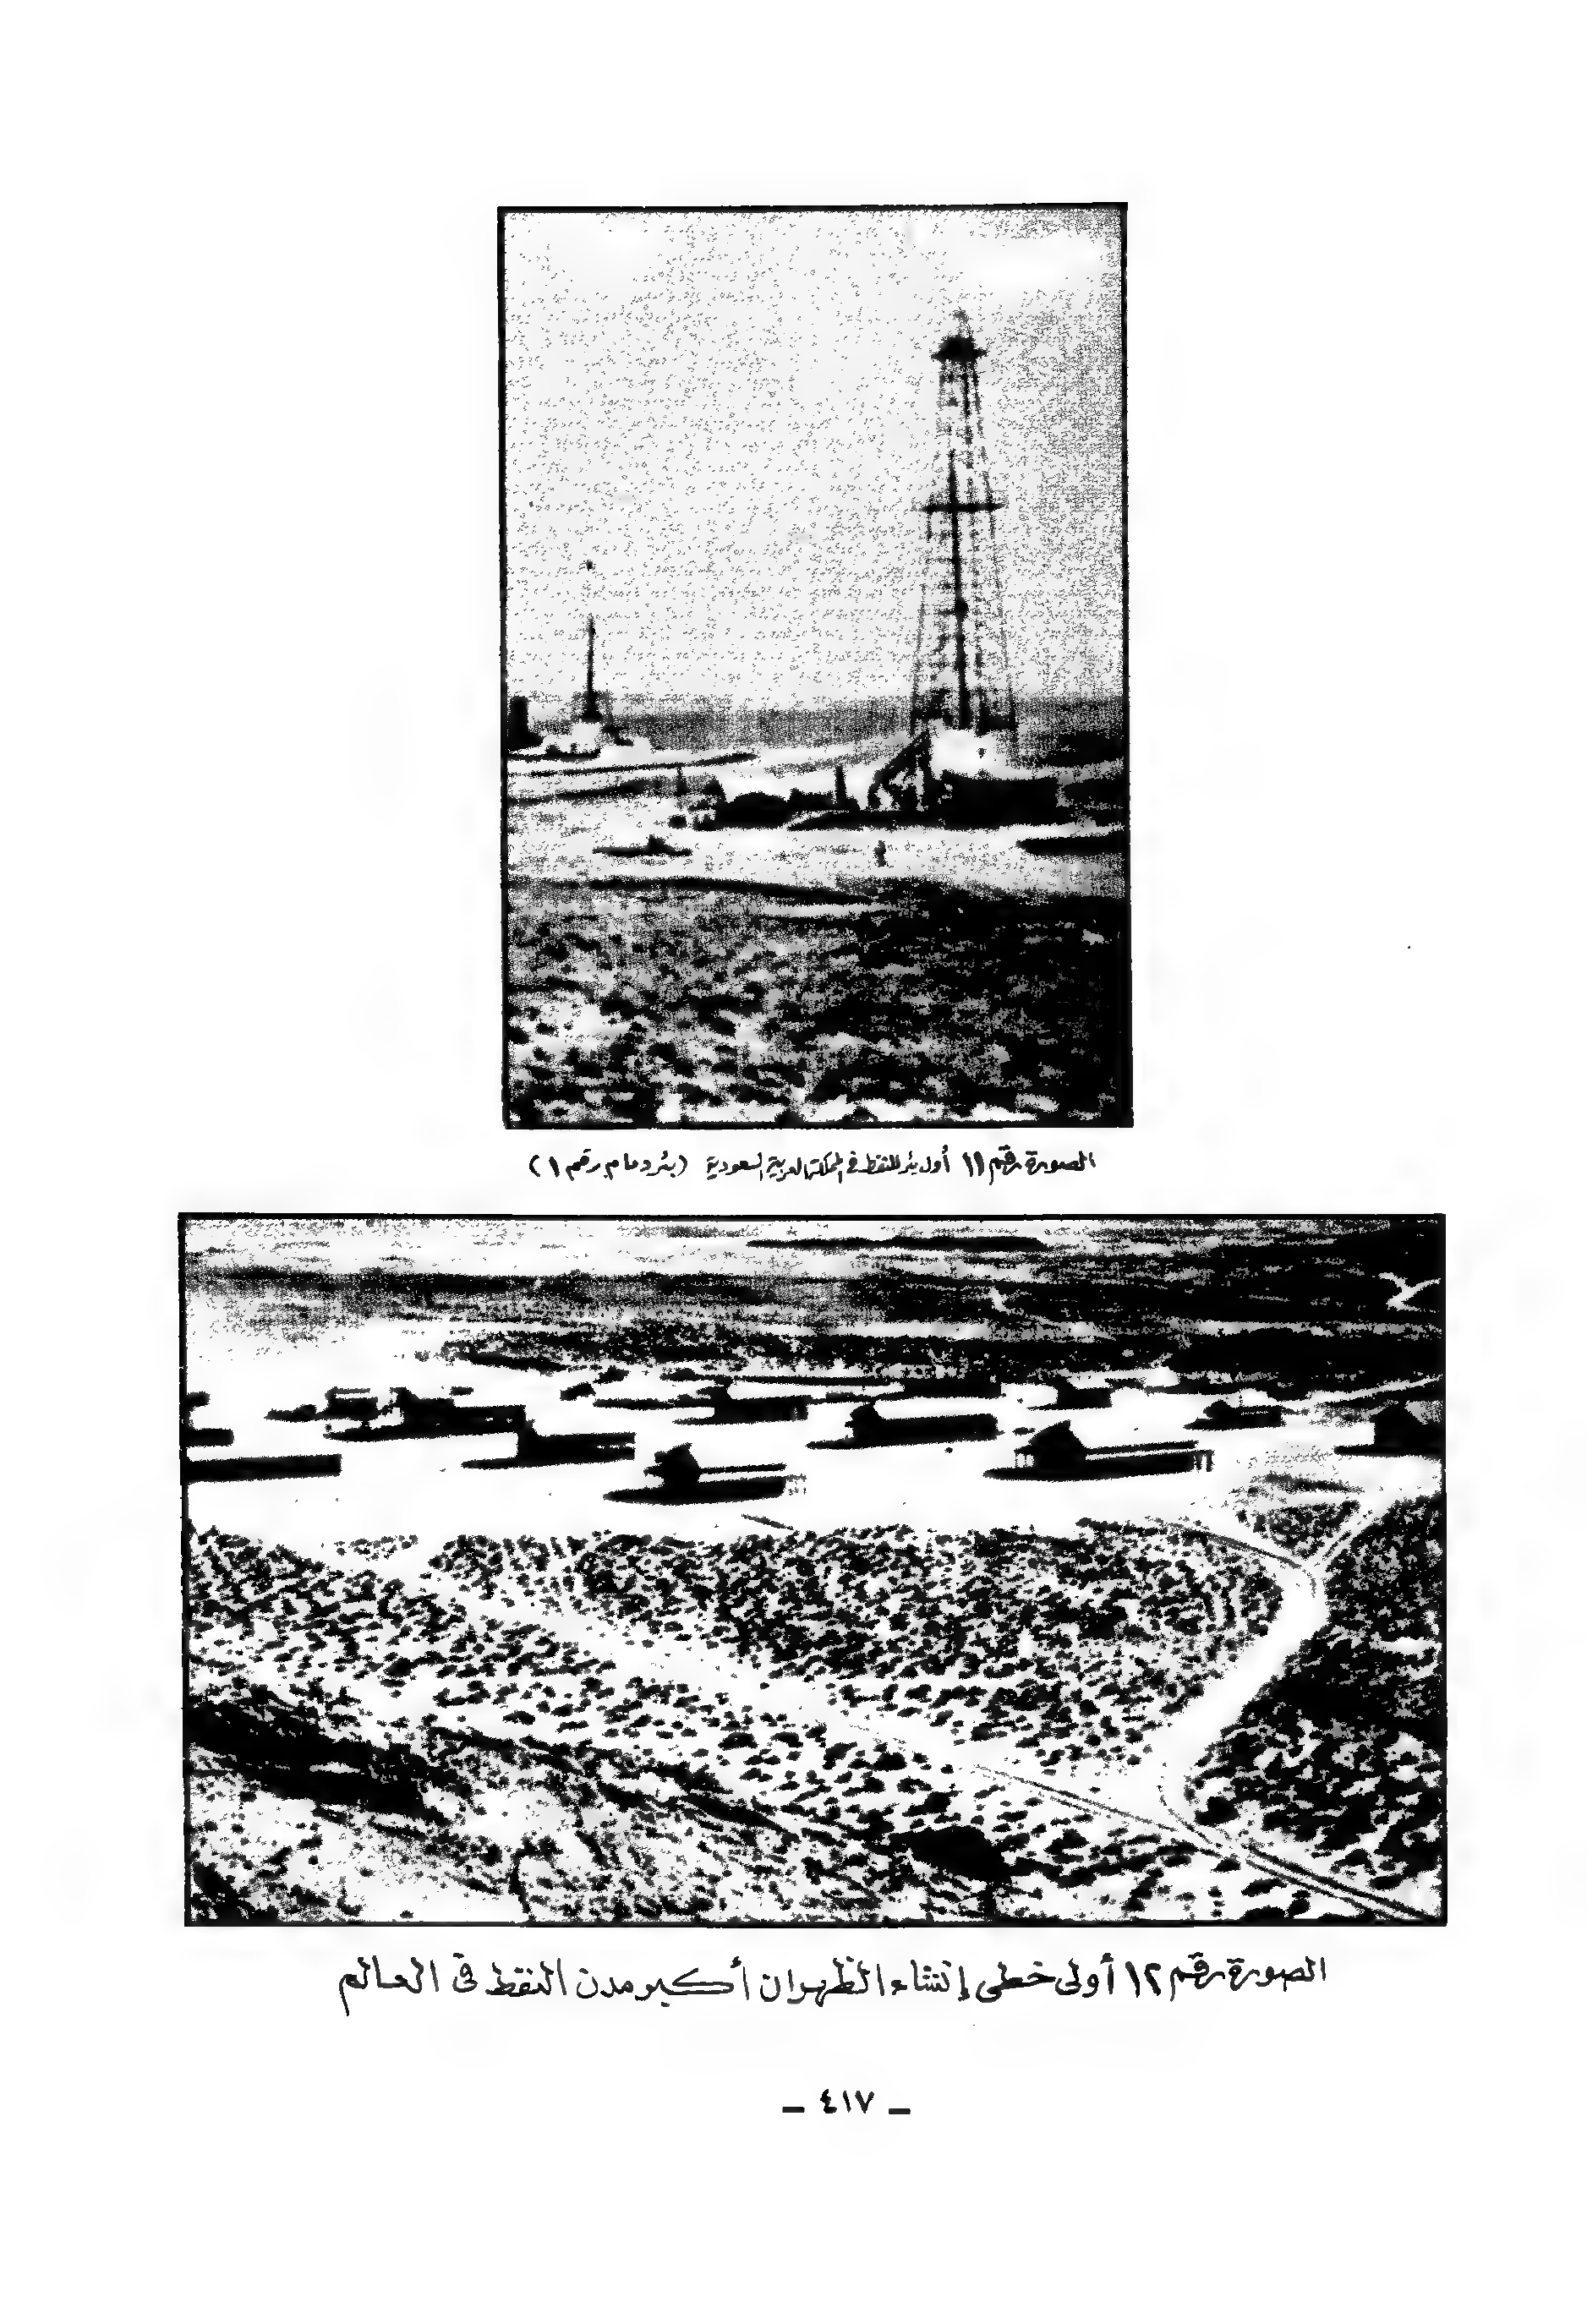 الصورة رقم ١١ أول بئر للنفط في المملكة العربية السعودية (بئر دمام رقم ١)
الصورة رقم ١٢ أولى خطى إنشاء الظهران أكبر مدن النفط في العالم
– ٤١٧ –